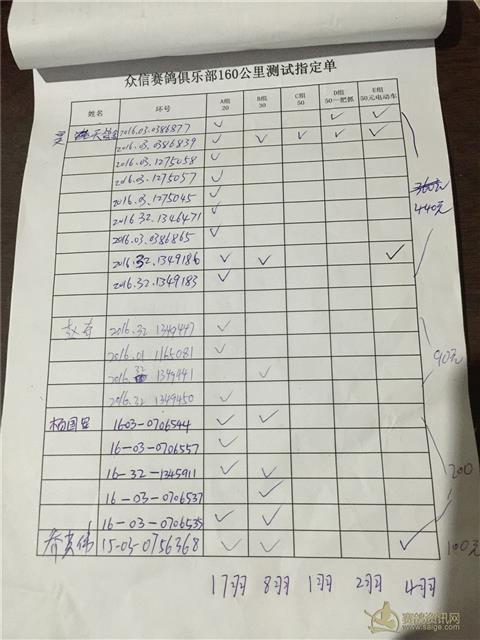 众信赛鸽俱乐部160公里测试指定单
姓名 环号 A组 20 B组 30 C组 50 D组 50一把抓 E组 50元电动车
2016.03.0386877 ✓ ✓ ✓
2016.03.0386839 ✓ ✓ ✓ ✓ ✓
2016.03.1275058 ✓
2016.03.1275057 ✓
2016.03.1275045 ✓
2016 32.1346471 ✓
2016.03.0386865 ✓
2016.32.1349186 ✓ ✓ ✓
2016.32.1349183 ✓
360元
440元
2016.32 1349447 ✓
2016.01 1165081 ✓
2016.32 1349441 ✓
2016.32 1349450 ✓
90元
1603-0706544 ✓ ✓
16-03-0706557 ✓
16-32-1345911 ✓ ✓
16-03-0706537 ✓
16-03-0706535 ✓ ✓
200
乔英伟 15-03-0756368 ✓ ✓ ✓
100元
17羽 8羽 1羽 2羽 4羽
赛鸽资讯网
www.saige.com